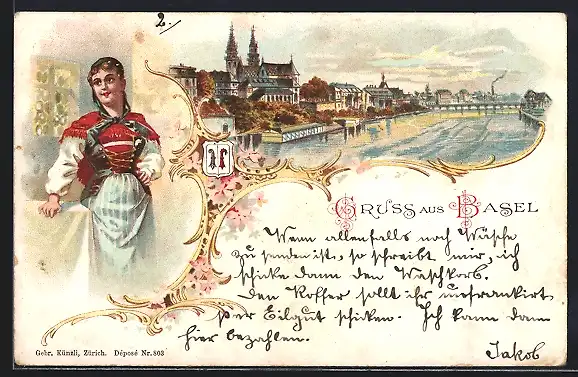 2.
GRUSS AUS BASEL
Wenn allenfalls noch Wäsche
zu senden ist, so schreibt mir, ich
schicke dann den Waschkorb.
Den Koffer sollt ihr unfrankirt
per Eilgut schicken. Ich kann dann
hier bezahlen.
Jakob
Gebr. Künzli, Zürich. Déposé Nr. 803